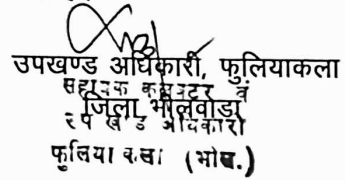 उपखण्ड अधिकारी, फुलियाकला
सहायक कलक्टर एवं
जिला भीलवाडा
उपखंड अधिकारी
फुलिया कला (भील.)